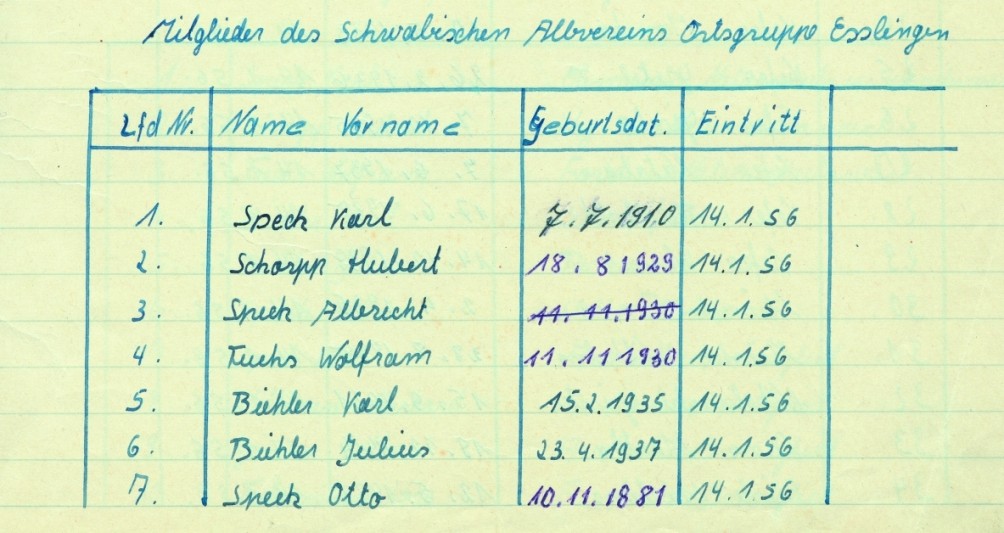 Mitglieder des Schwäbischen Albvereins Ortsgruppe Esslingen
Lfd Nr. Name Vorname Geburtsdat. Eintritt
1. Speck Karl 7.7.1910 14.1.56
2. Schorpp Hubert 18.8 1929 14.1.56
3. Speck Albrecht 11.11.1930 14.1.56
4. Fuchs Wolfram 11.11 1930 14.1.56
5. Bühler Karl 15.2.1935 14.1.56
6. Bühler Julius 23.4.1937 14.1.56
7. Speck Otto 10.11.1881 14.1.56